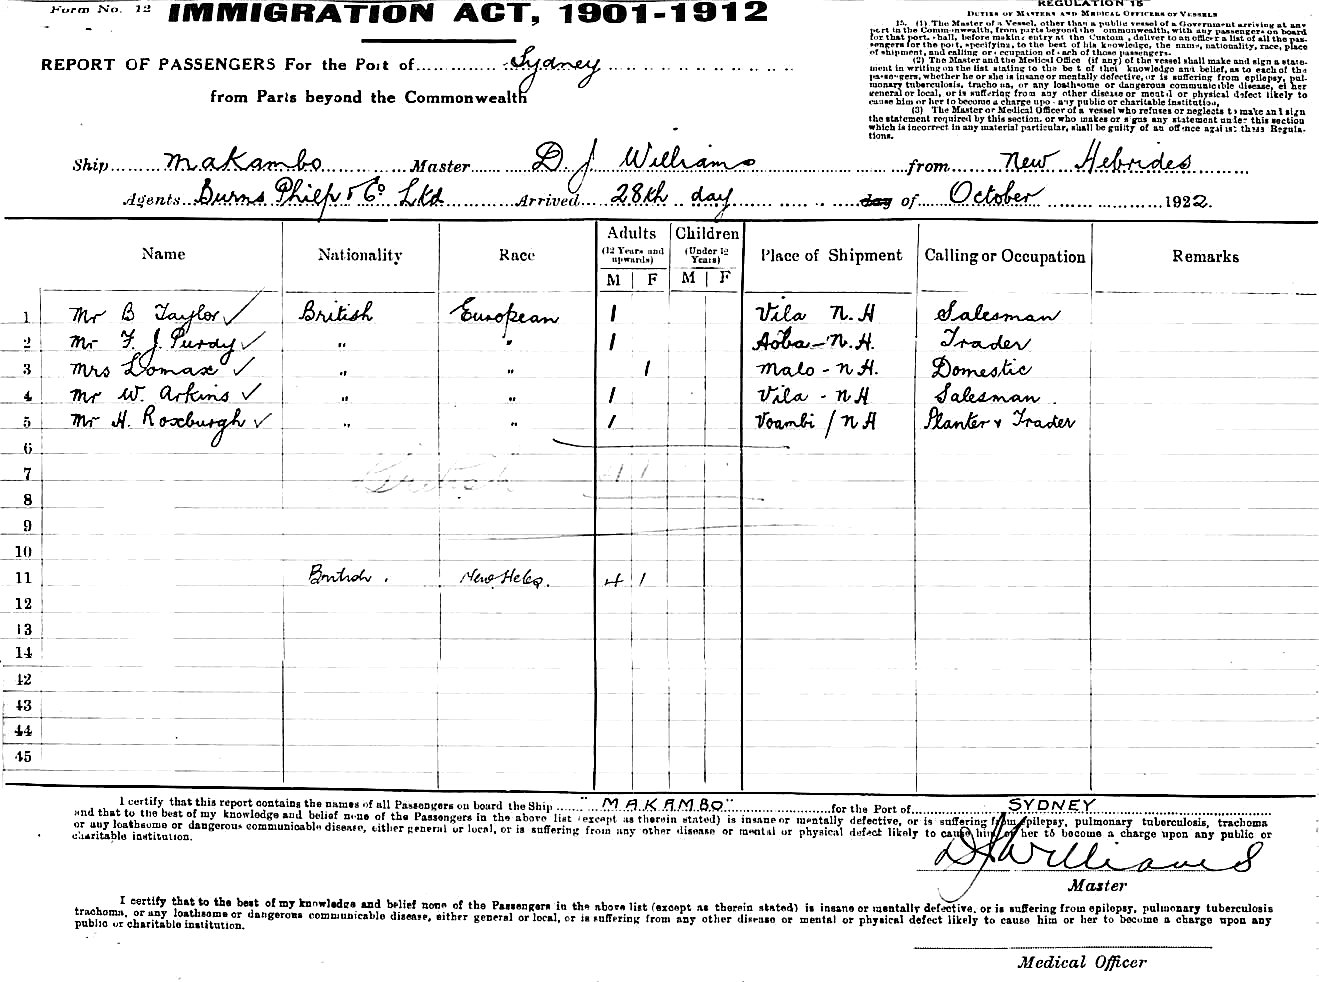 Form No. 12
IMMIGRATION ACT, 1901-1912
REPORT OF PASSENGERS For the Port of Sydney
from Parts beyond the Commonwealth
REGULATION 15
DUTIES OF MASTERS AND MEDICAL OFFICERS OF VESSELS
15. (1) The Master of a Vessel, other than a public vessel of a Government arriving at any
port in the Commonwealth, from parts beyond the Commonwealth, with any passengers on board
for that port, shall, before making entry at the Customs, deliver to an officer a list of all the pas-
sengers for the port, specifying, to the best of his knowledge, the name, nationality, race, place
of shipment, and calling or occupation of each of those passengers.
(2) The Master and the Medical Office (if any) of the vessel shall make and sign a state-
ment in writing on the list stating to the best of their knowledge and belief, as to each of the
passengers, whether he or she is insane or mentally defective, or is suffering from epilepsy, pul-
monary tuberculosis, trachoma, or any loathsome or dangerous communicable disease, either
general or local, or is suffering from any other disease or mental or physical defect likely to
cause him or her to become a charge upon any public or charitable institution.
(3) The Master or Medical Officer of a vessel who refuses or neglects to make and sign
the statement required by this section, or who makes or signs any statement under this section
which is incorrect in any material particular, shall be guilty of an offence against these Regula-
tions.
Ship Makambo Master D. J Williams from New Hebrides
Agents Burns Philp & Co Ltd Arrived 28th day day of October 1922.
Name Nationality Race Adults (12 Years and upwards) M F Children (Under 12 Years) M F Place of Shipment Calling or Occupation Remarks
1 Mr B Taylor ✓ British European 1 Vila N.H Salesman
2 Mr F. J. Purdy ✓ " " 1 Aoba - N.H. Trader
3 Mrs Lomax ✓ " " 1 Malo - N.H. Domestic
4 Mr W. Arkins ✓ " " 1 Vila - N H Salesman.
5 Mr H. Roxburgh ✓ " " 1 Voambi / N H Planter & Trader
6
7 British 4 1
8
9
10
11 British. New Hebs. 4 1
12
13
14
42
43
44
45
I certify that this report contains the names of all Passengers on board the Ship "MAKAMBO" for the Port of SYDNEY
and that to the best of my knowledge and belief none of the Passengers in the above list (except as therein stated) is insane or mentally defective, or is suffering from epilepsy, pulmonary tuberculosis, trachoma
or any loathsome or dangerous communicable disease, either general or local, or is suffering from any other disease or mental or physical defect likely to cause him or her to become a charge upon any public or
charitable institution.
D J Williams
Master
I certify that to the best of my knowledge and belief none of the Passengers in the above list (except as therein stated) is insane or mentally defective, or is suffering from epilepsy, pulmonary tuberculosis
trachoma, or any loathsome or dangerous communicable disease, either general or local, or is suffering from any other disease or mental or physical defect likely to cause him or her to become a charge upon any
public or charitable institution.
Medical Officer